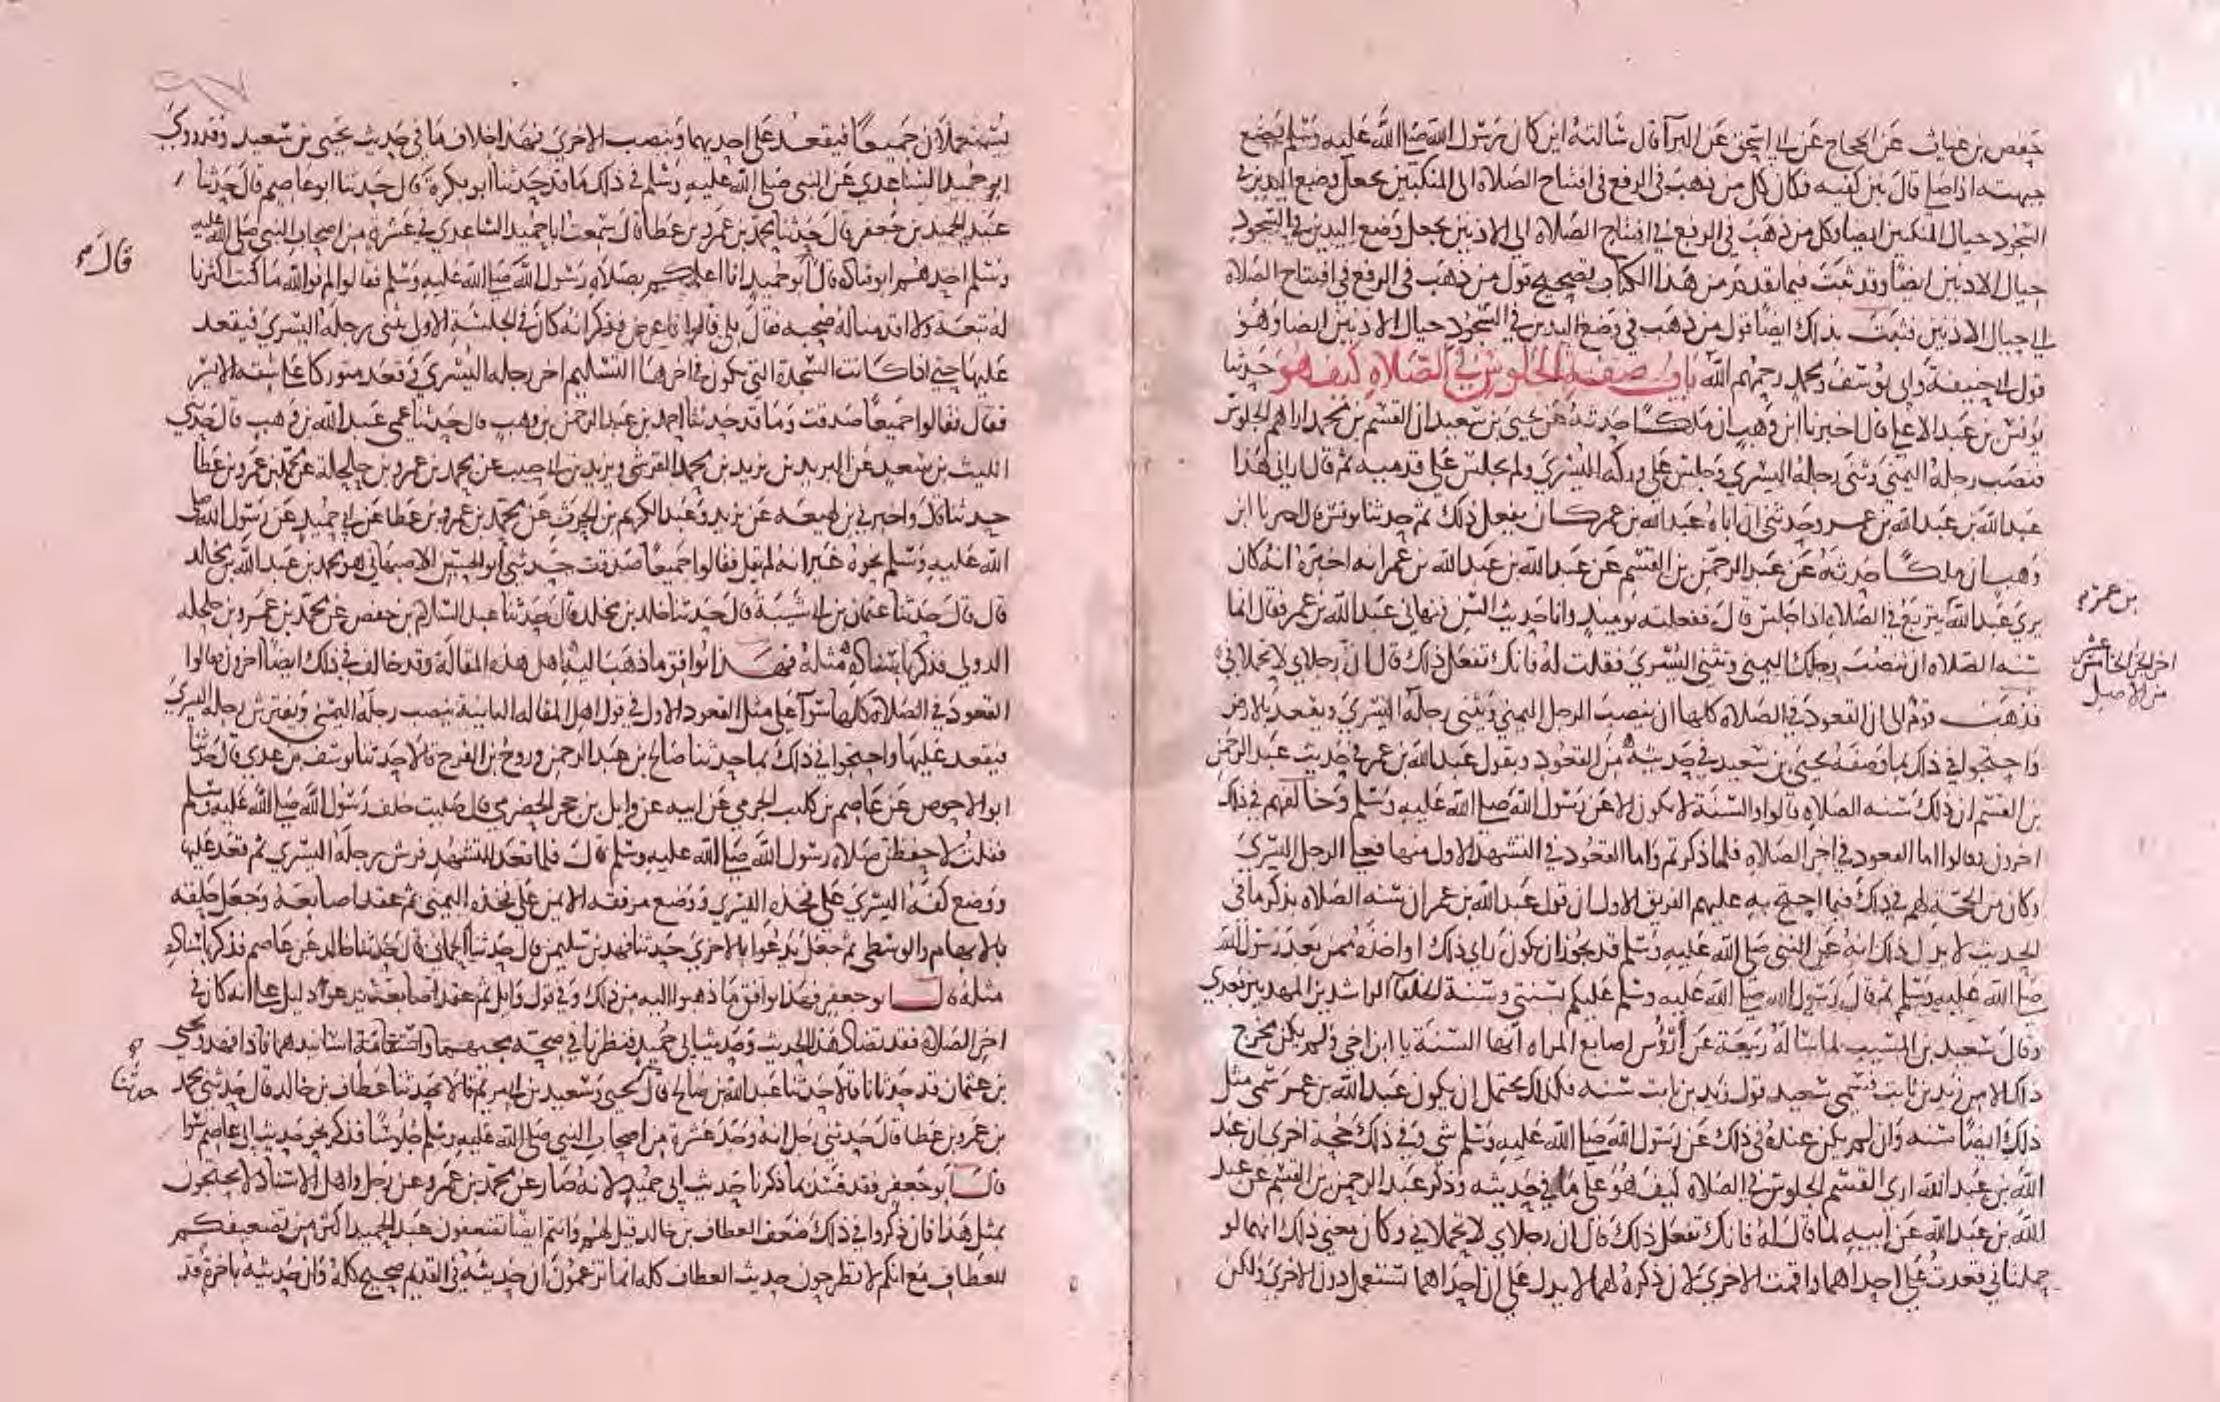 حفص بن غياث عن الحجاج عن ابي اسحق عن البرآ قال سالته اين كان رسول الله صلى الله عليه وسلم يضع
جبهته اذا صلى قال بين كفيه فكان كل من ذهب في الرفع في افتتاح الصلاة الى المنكبين يجعل وضع اليدين في
السجود حيال المنكبين ايضا وكل من ذهب في الرفع في افتتاح الصلاة الى الاذنين يجعل وضع اليدين في السجود
حيال الاذنين ايضا وقد ثبت فيما تقدم من هذا الكتاب تصحيح قول من ذهب في الرفع في افتتاح الصلاة
الى حيال الاذنين فثبت بذلك ايضا قول من ذهب في وضع اليدين في السجود حيال الاذنين ايضا وهو
قول ابي حنيفة وابي يوسف ومحمد رحمهم الله باب صفة الجلوس في الصلاة كيف هو حدثنا
يونس بن عبد الاعلى قال اخبرنا ابن وهب ان ملكا حدثه عن يحيى بن سعيد ان القسم بن محمد اراهم الجلوس
فنصب رجله اليمنى وثنى رجله اليسرى وجلس على وركه اليسرى ولم يجلس على قدميه ثم قال اراني هذا
عبد الله بن عبد الله بن عمر وحدثني ان اباه عبد الله بن عمر كان يفعل ذلك ثم حدثنا يونس قال اخبرنا ابن
وهب ان ملكا حدثه عن عبد الرحمن بن القسم عن عبد الله بن عبد الله بن عمر انه اخبره انه كان
يرى عبد الله يتربع في الصلاة اذا جلس قال ففعلته يوميذ وانا حديث السن فنهاني عبد الله بن عمر فقال انما
بن عمر
سنه الصلاه ان تنصب رجلك اليمنى وتثني اليسرى فقلت له فانك تفعل ذلك قال ان رجلاي لا تحملاني
اخر الجزء الخامس عشر
من الاصل
فذهب قوم الى ان القعود في الصلاة كلها ان ينصب الرجل اليمني ويثني رجله اليسرى ويقعد بالارض
واحتجوا في ذلك بما وصفه يحيى بن سعيد في حديثه من القعود وبقول عبد الله بن عمر في حديث عبد الرحمن
بن القسم ان ذلك سنه الصلاه قالوا والسنة لا تكون الا عن رسول الله صلى الله عليه وسلم وخالفهم في ذلك
اخرون فقالوا اما القعود في اخر الصلاه فكما ذكرتم واما القعود في التشهد الاول منها فعلى الرجل اليسرى
وكان من الحجة لهم في ذلك فيما احتج به عليهم الفريق الاول ان قول عبد الله بن عمر ان سنه الصلاه فذكر ما في
الحديث لا يدل ذلك انه عن النبي صلى الله عليه وسلم قد يجوز ان يكون راى ذلك او اخذه ممن بعد رسول الله
صلى الله عليه وسلم ثم قال رسول الله صلى الله عليه وسلم عليكم بسنتي وسنة الخلفآ الراشدين المهديين بعدي
وقال سعيد بن المسيب لما ساله ربيعة عن أرؤس اصابع المراه انها السنة يا ابن اخي ولم يكن مخرج
ذلك الا من زيد بن ثابت فسمى سعيد قول زيد بن ثابت سنه فكذلك يحتمل ان يكون عبد الله بن عمر سمى مثل
ذلك ايضا سنه وان لم يكن عنده في ذلك عن رسول الله صلى الله عليه وسلم شي وفي ذلك حجة اخرى ان عبد
الله بن عبد الله ارى القسم الجلوس في الصلاه كيف هو على ما في حديثه وذكر عبد الرحمن بن القسم عن عبد
الله بن عبد الله عن ابيه لما قال له فانك تفعل ذلك قال ان رجلاي لا تحملاني وكان معنى ذلك انهما لو
حملتاني قعدت على احداهما واقمت الاخرى لان ذكره لهما لا يدل على ان احداهما تستعمل دون الاخرى ولكن
تستعملان جميعا فيقعد على احديهما وينصب الاخرى فهذا خلاف ما في حديث يحيى بن سعيد وقد روى
ابو حميد الساعدي عن النبي صلى الله عليه وسلم في ذلك ما قد حدثنا ابو بكرة قال حدثنا ابو عاصم قال حدثنا
عبد الحميد بن جعفر قال حدثنا محمد بن عمرو بن عطا قال سمعت ابا حميد الساعدي في عشرة من اصحاب النبي صلى الله عليه
وسلم احدهم ابو قتادة قال ابو حميد انا اعلمكم بصلاة رسول الله صلى الله عليه وسلم فقالوا لم فوالله ما كنت اكثرنا
قال
له تبعة ولا اقدمنا له صحبه فقال بلى قالوا فاعرض فذكر انه كان في الجلسة الاولى يثني رجله اليسرى فيقعد
عليها حتى اذا كانت السجدة التي يكون في اخرها التسليم اخر رجله اليسرى وقعد متوركا على شقه الايسر
فقال فقالوا جميعا صدقت وما قد حدثنا احمد بن عبد الرحمن بن وهب قال حدثنا عمي عبد الله بن وهب قال حدثني
الليث بن سعد عن يزيد بن محمد القرشي ويزيد بن ابي حبيب عن محمد بن عمرو بن حلحلة عن محمد بن عمرو بن عطا
حدثنا قال واخبرني بن لهيعه عن يزيد وعبد الكريم بن الحرث عن محمد بن عمرو بن عطا عن ابي حميد عن رسول الله صلى
الله عليه وسلم نحوه غير انه لم يقل فقالوا جميعا صدقت حدثني ابو الحسين الاصبهاني هو محمد بن عبد الله بن مخلد
قال حدثنا عثمان بن ابي شيبة قال حدثنا خالد بن مخلد قال حدثنا عبد السلام بن حفص عن محمد بن عمرو بن حلحله
الدولي فذكر باسناده مثله فهذا يوافق ما ذهب اليه اهل هذه المقالة وقد خالف في ذلك ايضا اخرون فقالوا
القعود في الصلاة كلها سوآ على مثل القعود الاول في قول اهل المقاله الثانية ينصب رجله اليمنى ويفترش رجله اليسرى
فيقعد عليها واحتجوا في ذلك بما حدثنا صالح بن عبد الرحمن وروح بن الفرج قالا حدثنا يوسف بن عدي قال حدثنا
ابو الاحوص عن عاصم بن كليب الجرمي عن ابيه عن وايل بن حجر الحضرمي قال صليت خلف رسول الله صلى الله عليه وسلم
فقلت لاحفظن صلاة رسول الله صلى الله عليه وسلم قال فلما قعد للتشهد فرش رجله اليسرى ثم قعد عليها
ووضع كفه اليسرى على فخذه اليسرى ووضع مرفقه الايمن على فخذه اليمنى ثم عقد اصابعة وجعل حلقه
بالابهام والوسطى ثم جعل يدعوا بالاخرى حدثنا فهد بن سليمن قال حدثنا الحماني قال حدثنا خالد عن عاصم فذكر باسناده
مثله قال ابو جعفر فهذا يوافق ما ذهبوا اليه من ذلك وفي قول وايل ثم عقد اصابعه يدعو دليل على انه كان في
اخر الصلاة فقد تضاد هذا الحديث وحديث ابي حميد فنظرنا في صحة مجيهما واستقامة اسانيدهما فاذا فهد ويحيى
بن عثمان قد حدثانا قالا حدثنا عبد الله بن صالح قال يحيى وسعيد بن ابي مريم قالا حدثنا عطاف بن خالد قال حدثني محمد
حدثنا
بن عمرو بن عطا قال حدثني رجل انه وجد عشرة من اصحاب النبي صلى الله عليه وسلم جلوسا فذكر نحو حديث ابي عاصم سوا
قال ابو جعفر فقد فسد بما ذكرنا حديث ابي حميد لانه صار عن محمد بن عمرو عن رجل واهل الاسناد لا يحتجون
بمثل هذا فان ذكروا في ذلك ضعف العطاف بن خالد قيل لهم وانتم ايضا تضعفون عبد الحميد اكثر من تضعيفكم
للعطاف مع انكم لا تطرحون حديث العطاف كله انما تزعمون ان حديثه في القديم صحيح كله وان حديثه باخرة قد